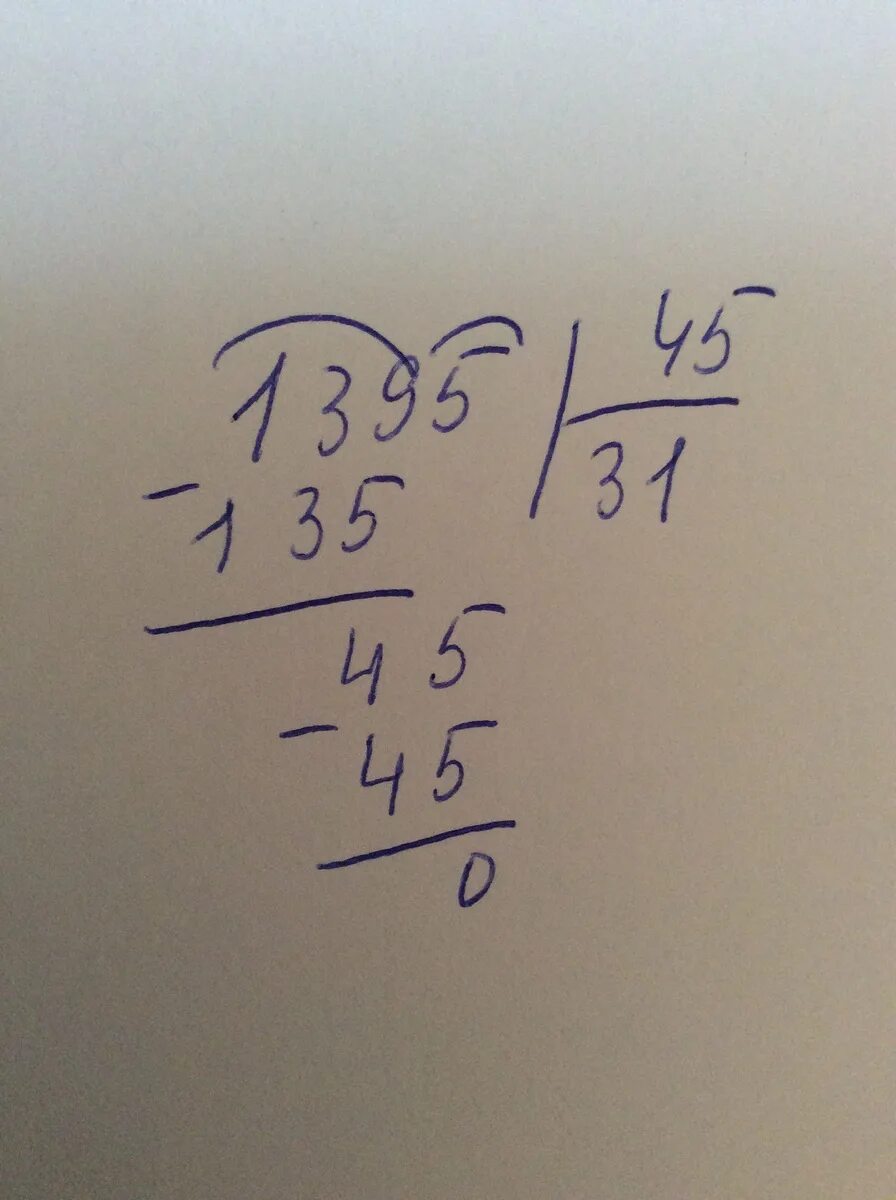 1395 | 45
- 135 31
45
- 45
0